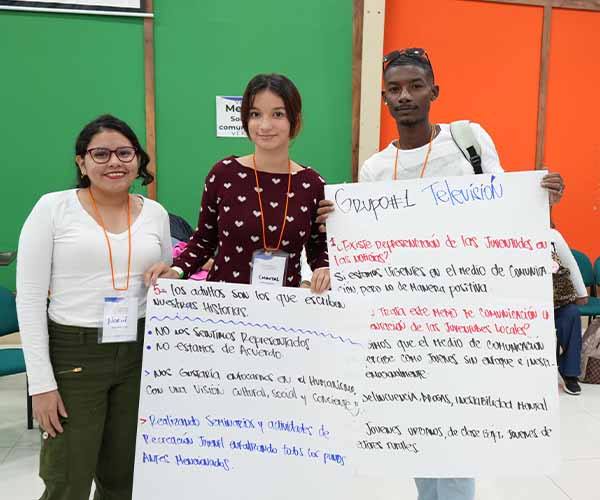 Me
So
comun
VER
Grupo#1 Televisión
1. ¿Existe Representación de las Juventudes en
las noticias?
Si estamos Vigentes en el medio de comunica
ción pero no de Manera positiva
Trata este Medio de comunicación
de las Juventudes Locales?
que el medio de comunicación
como Jóvenes sin enfoque e
Delincuencia, Drogas, inestabilidad Mental
Jóvenes urbanos, de clase Jóvenes de
rurales
5.- los adultos son los que escriben
nuestras Historias.
• No los Sentimos Representados
• No estamos de Acuerdo.
> Nos Gustaría enfocarnos en el Humanismo
con una Visión cultural, social y consciente
> Realizando Seminarios y actividades de
Recreación Juvenil enfatizando todos los puntos
Antes Mencionados.
Chantal